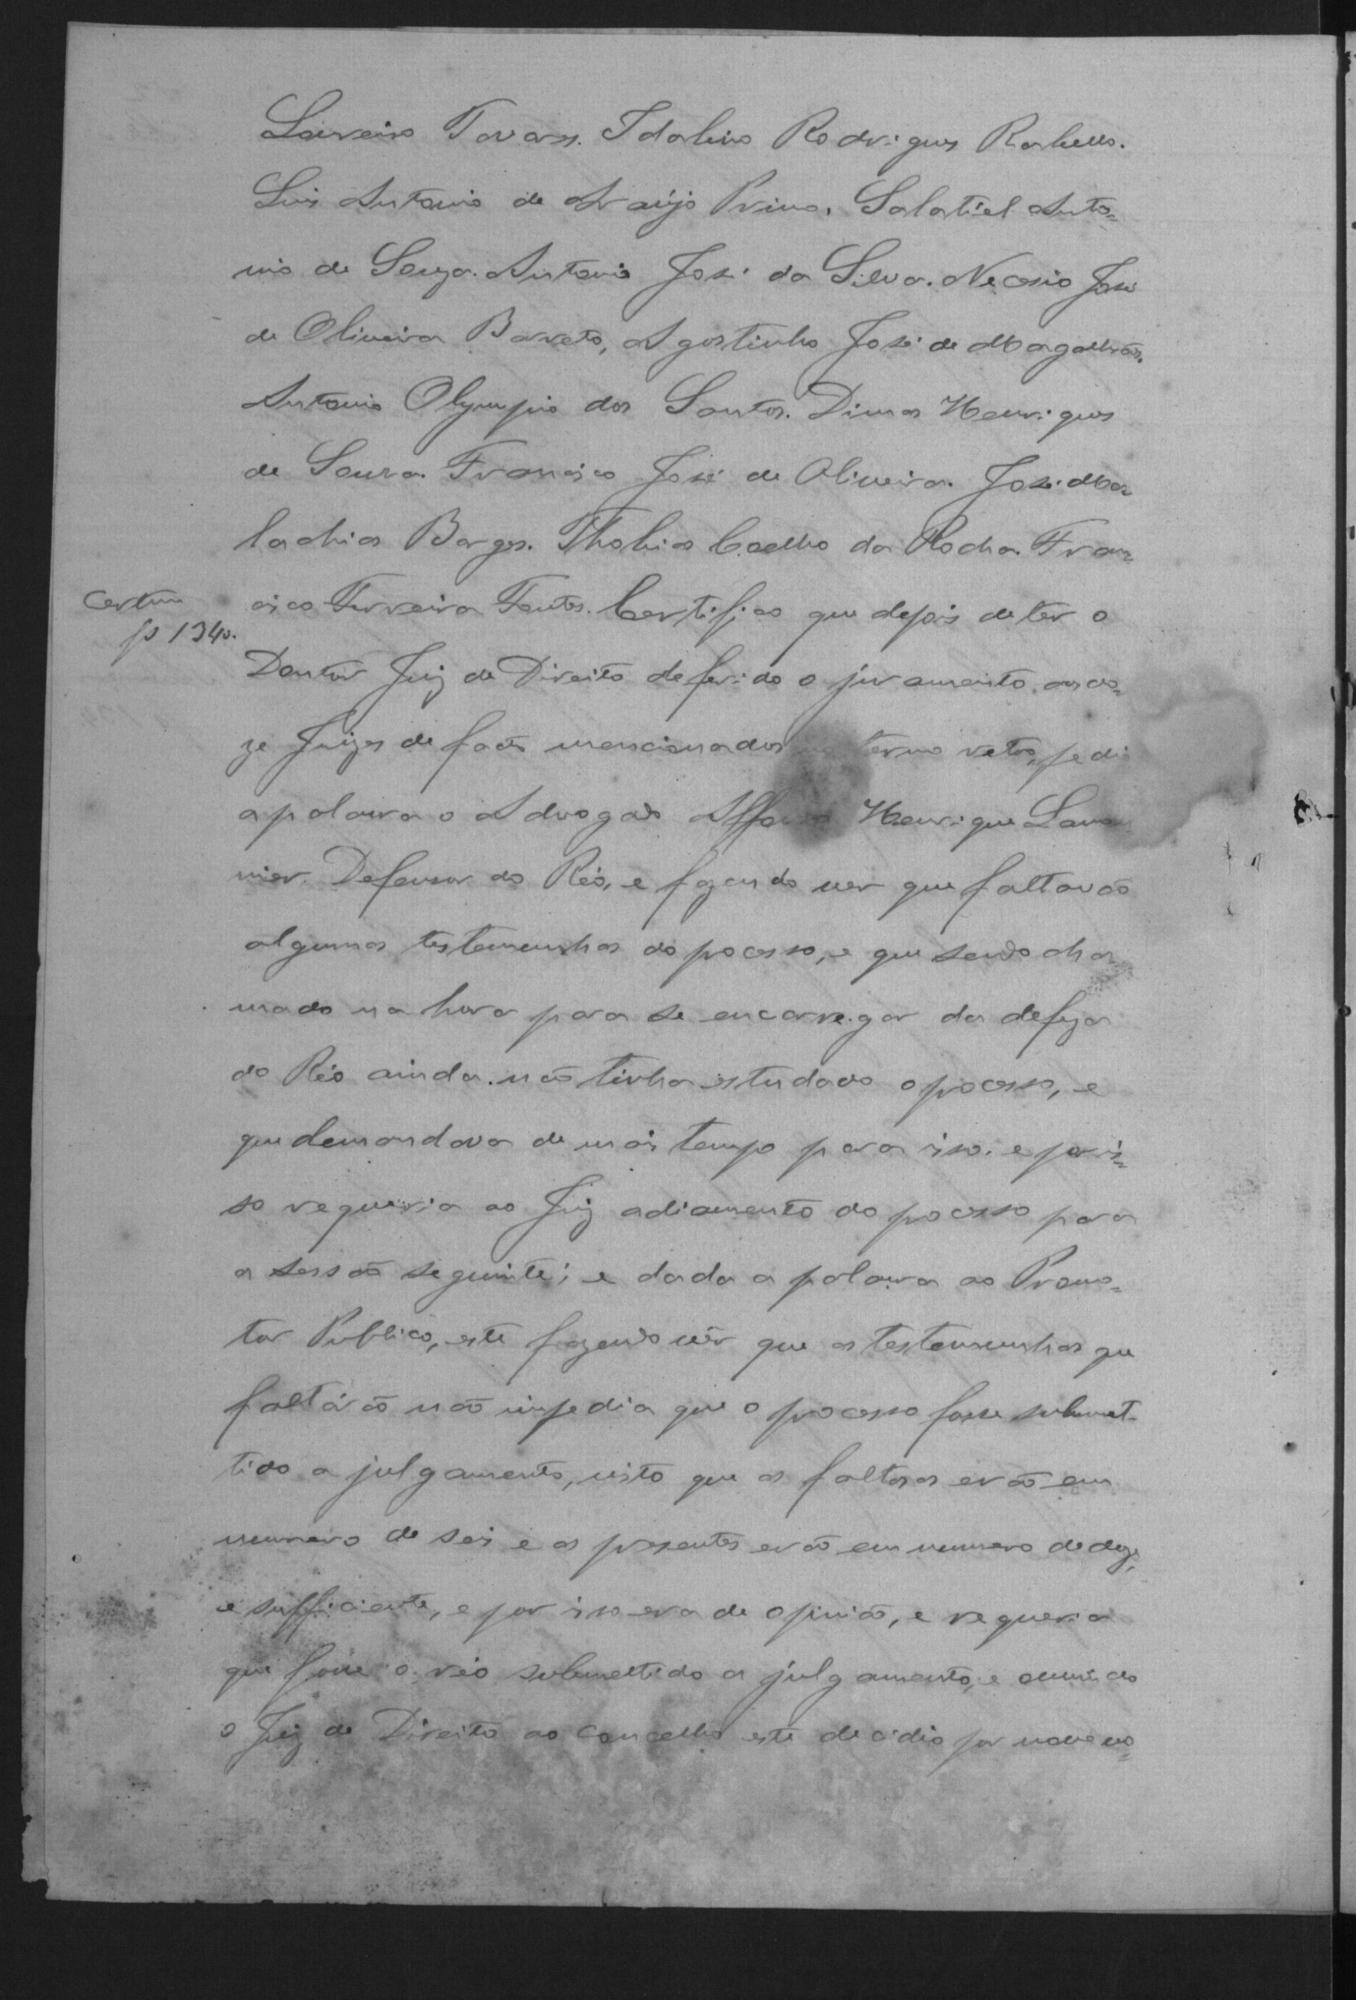 Loireiro Tavares. Idalino Rodrigues Rabello.
Luis Antonio de Araújo Primo. Salatiel Anto=
nio de Souza. Antonio José da Silva. Necesio José
de Oliveira Barreto, Agostinho José de Magalhães.
Antonio Olympio dos Santos. Dimas Henriques
de Soura. Francisco José de Oliveira. José Ma=
lachias Borges. Thobias Coelho da Rocha. Fran=
cisco Ferreira Fontes. Certifico que depois de ter o
Certam
p 134v.
Doutor Juiz de Direito deferido o juramento aos do=
ze Juizes de facto mencionados termo retro, pedi
a palavra o Advogado Affonso Henrique
nier. Defensor do Réo, e fazendo ver que faltavão
algumas testemunhas do pocesso, e que sendo cha
mado na hora para se encarregar da defeza
do Réo ainda não tinha estudado o pocesso, e
que demandava de mais tempo para isso. e por is=
so requeria ao Juiz adiamento do pocesso para
a sessão seguinte; e dada a palavra ao Promo=
tor Publico, este fazendo vêr que as testemunhas que
faltárão não impedia que o processo fosse submet-
tido a julgamento, visto que as faltosas erão em
numero de seis e as presentes erão em numero de doze,
e sufficiente, e por isso era de opinião, e requeria
que fosse o réo submettido a julgamento, e ouvindo
o Juiz de Direito ao concelho este decidio por nove vo=